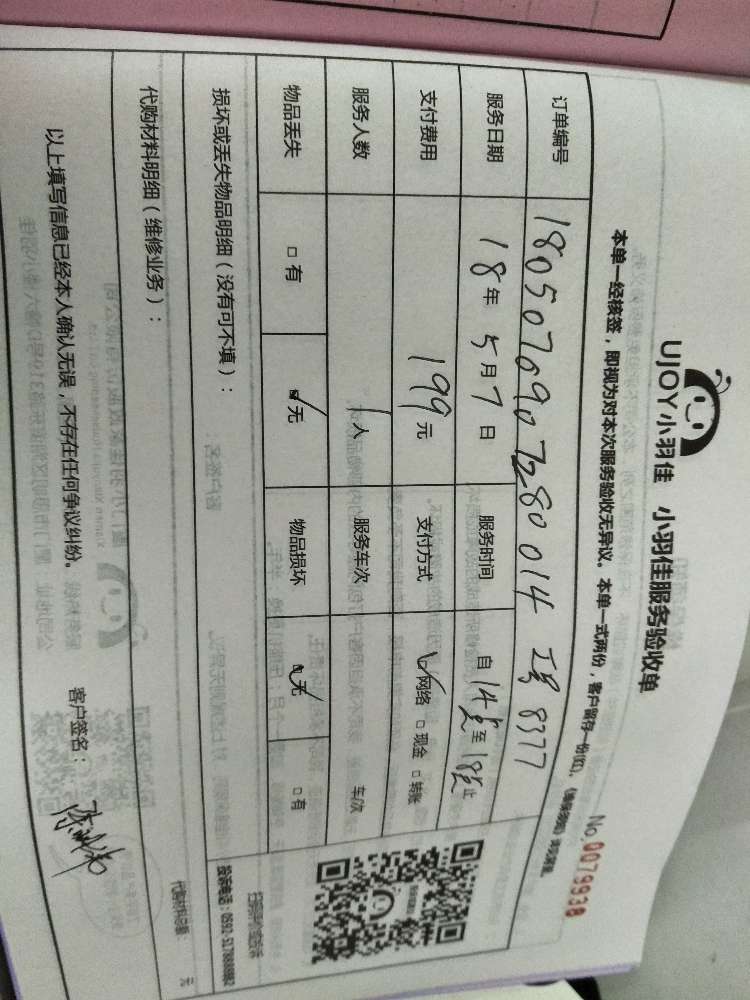 UJOY小羽佳 小羽佳服务验收单
No. 0079938
本单一经核签，即视为对本次服务验收无异议。本单一式两份，客户留存一份(红)，
订单编号 1805076907280014 工号 8377
服务日期 18年 5月7日 服务时间 自14点至18点止
支付费用 199元 支付方式 ☑网络 □现金 □转账
服务人数 1人 服务车次 车次
物品丢失 □有 ☑无 物品损坏 ☑无 □有
损坏或丢失物品明细（没有可不填）：
扫码评价或投诉
代购材料明细（维修业务）：
代购材料总额： 元
以上填写信息已经本人确认无误，不存在任何争议纠纷。 客户签名：